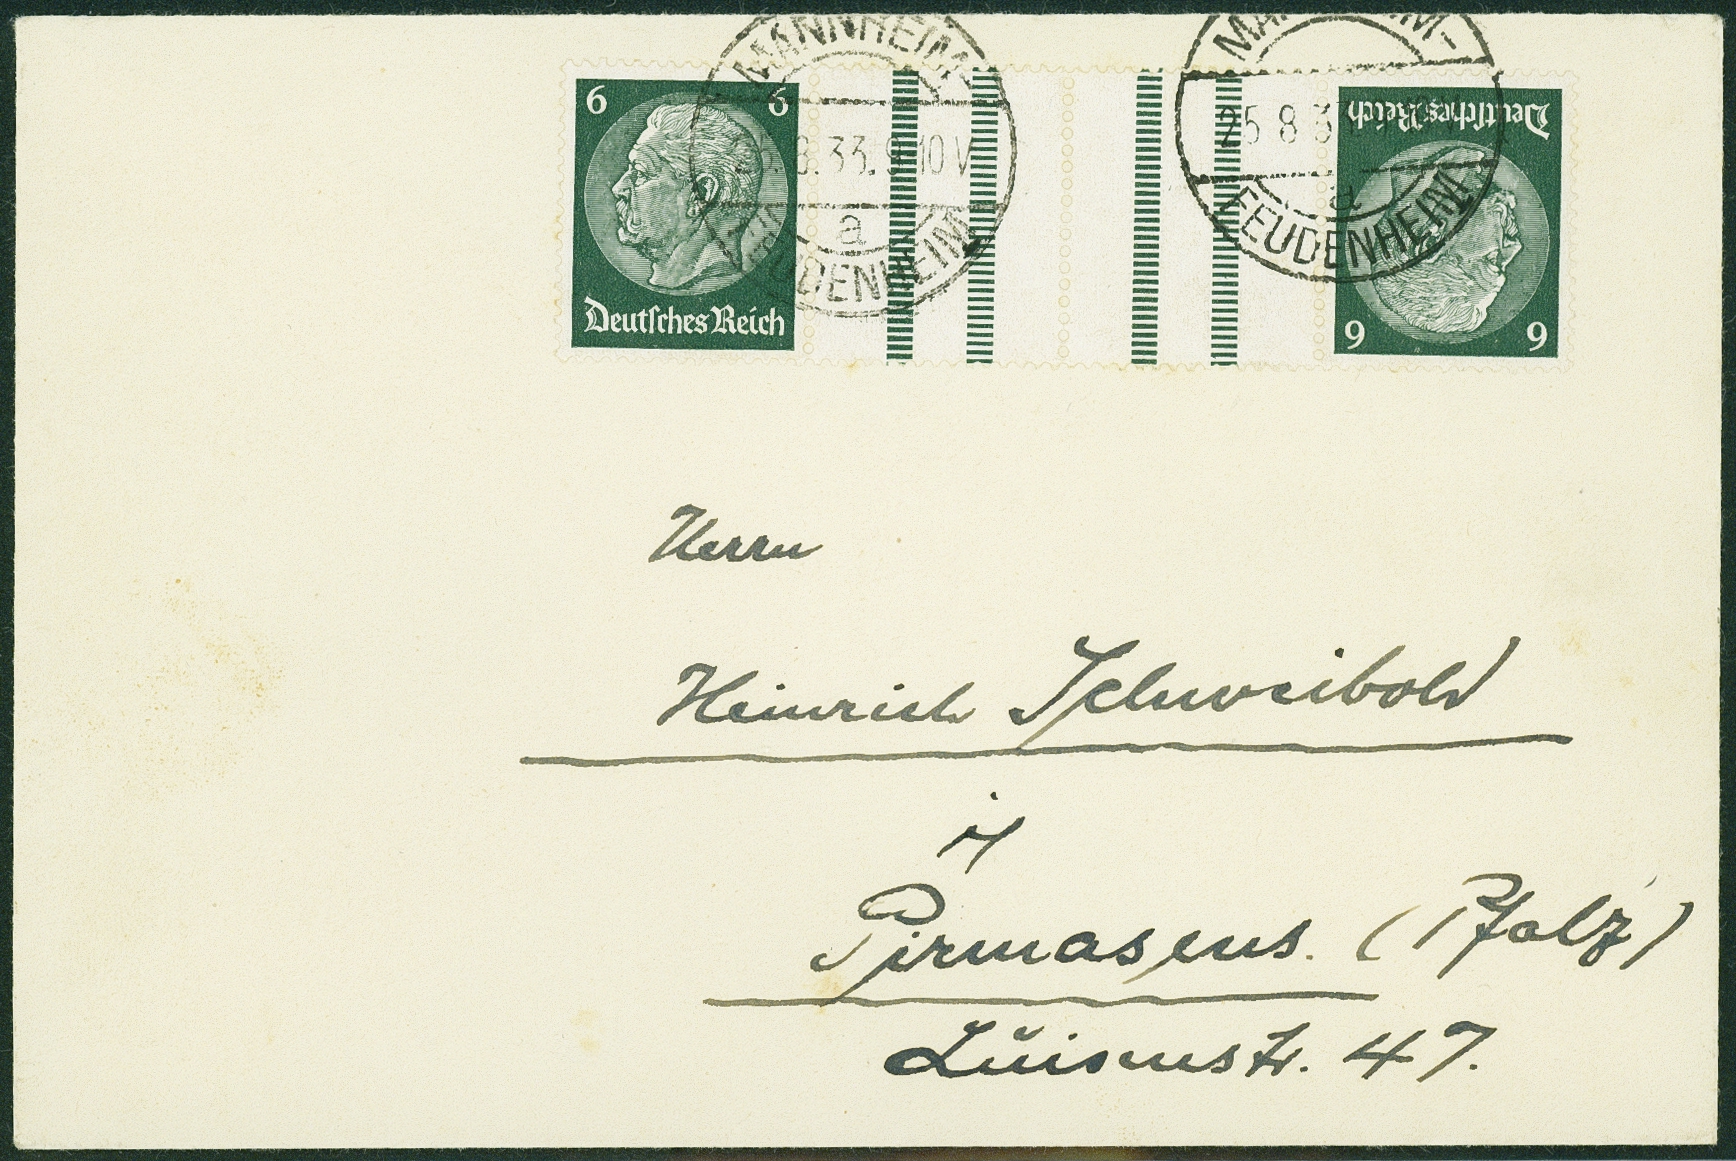 6 6
Deutsches Reich
MANNHEIM-
8.33.9-10 V
a
FEUDENHEIM
MANNHEIM-
25 8 33
a
FEUDENHEIM
Deutsches Reich
6 6
Herrn
Heinrich Schweibold
in
Pirmasens. (Pfalz)
Luisenstr. 47.